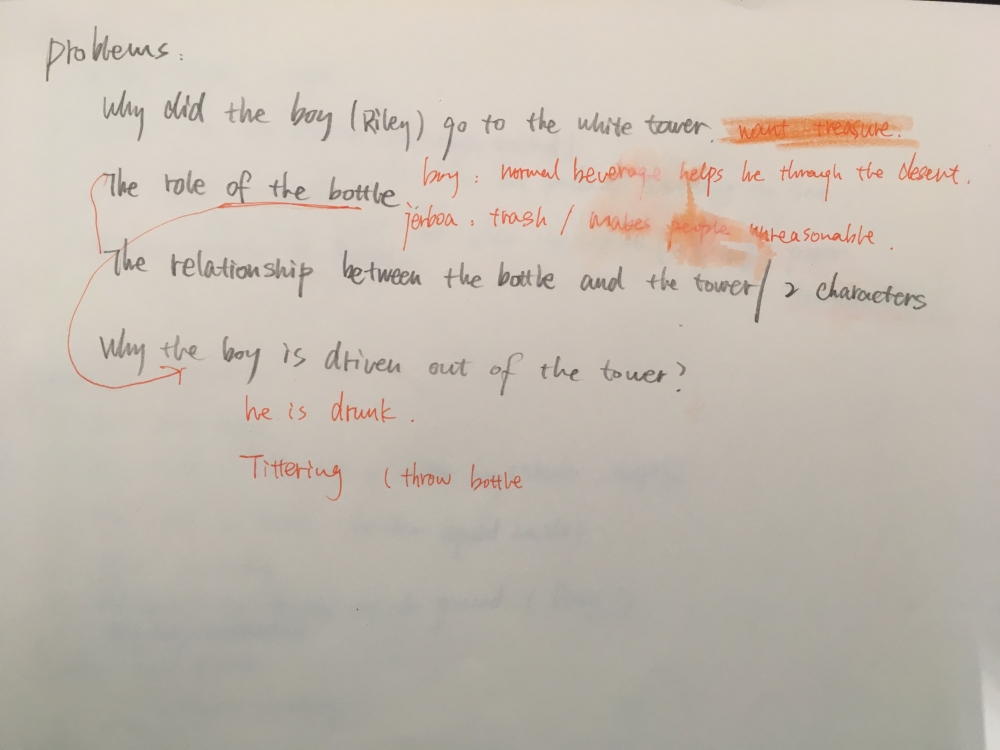 Problems:
Why did the boy (Riley) go to the white tower. want treasure.
The role of the bottle
boy: normal beverage helps he through the desert.
jerboa: trash / makes people unreasonable.
The relationship between the bottle and the tower / 2 characters
Why the boy is driven out of the tower?
he is drunk.
Tittering (throw bottle